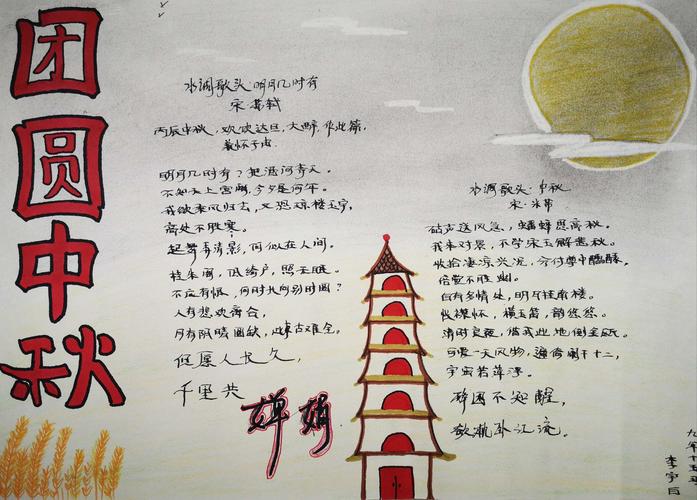 团圆中秋
水调歌头·明月几时有
宋·苏轼
丙辰中秋,欢饮达旦,大醉,作此篇,
兼怀子由
明月几时有?把酒问青天。
不知天上宫阙,今夕是何年。
我欲乘风归去,又恐琼楼玉宇,
高处不胜寒。
起舞弄清影,何似在人间。
转朱阁,低绮户,照无眠。
不应有恨,何时长向别时圆?
人有悲欢离合,
月有阴晴圆缺,此事古难全。
但愿人长久,
千里共
婵娟
水调歌头·中秋
宋·米芾
砧声送风急,蟠蟀思高秋。
我来对景,不学宋玉解悲秋。
收拾凄凉兴况,分付尊中醽醁,
倍觉不胜幽。
自有多情处,明月挂南楼。
怅襟怀,横玉笛,韵悠悠。
清时良夜,借我此地倒金瓯。
可爱一天风物,遍倚阑干十二,
宇宙若萍浮。
醉困不知醒,
欹枕卧江流。
李宇